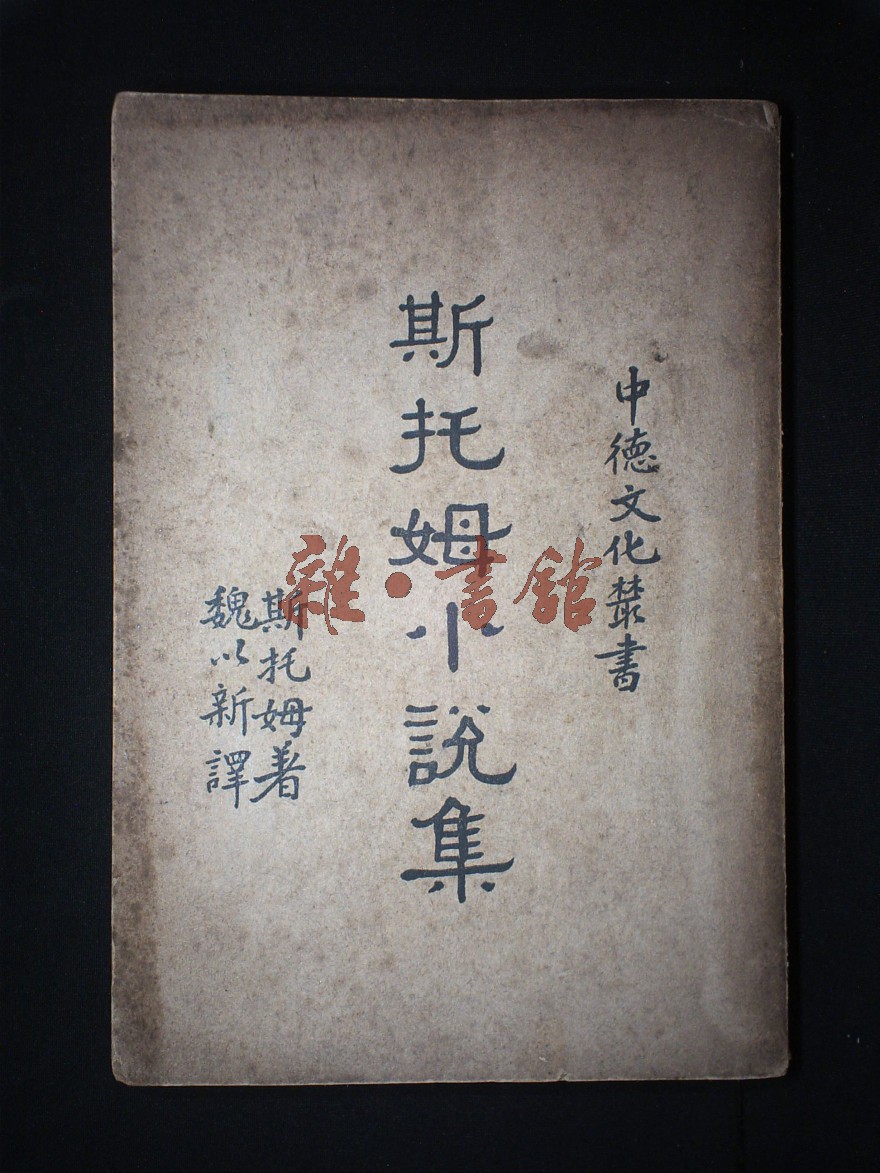 中德文化叢書
斯托姆小說集
斯托姆著
魏以新譯
雜·書館